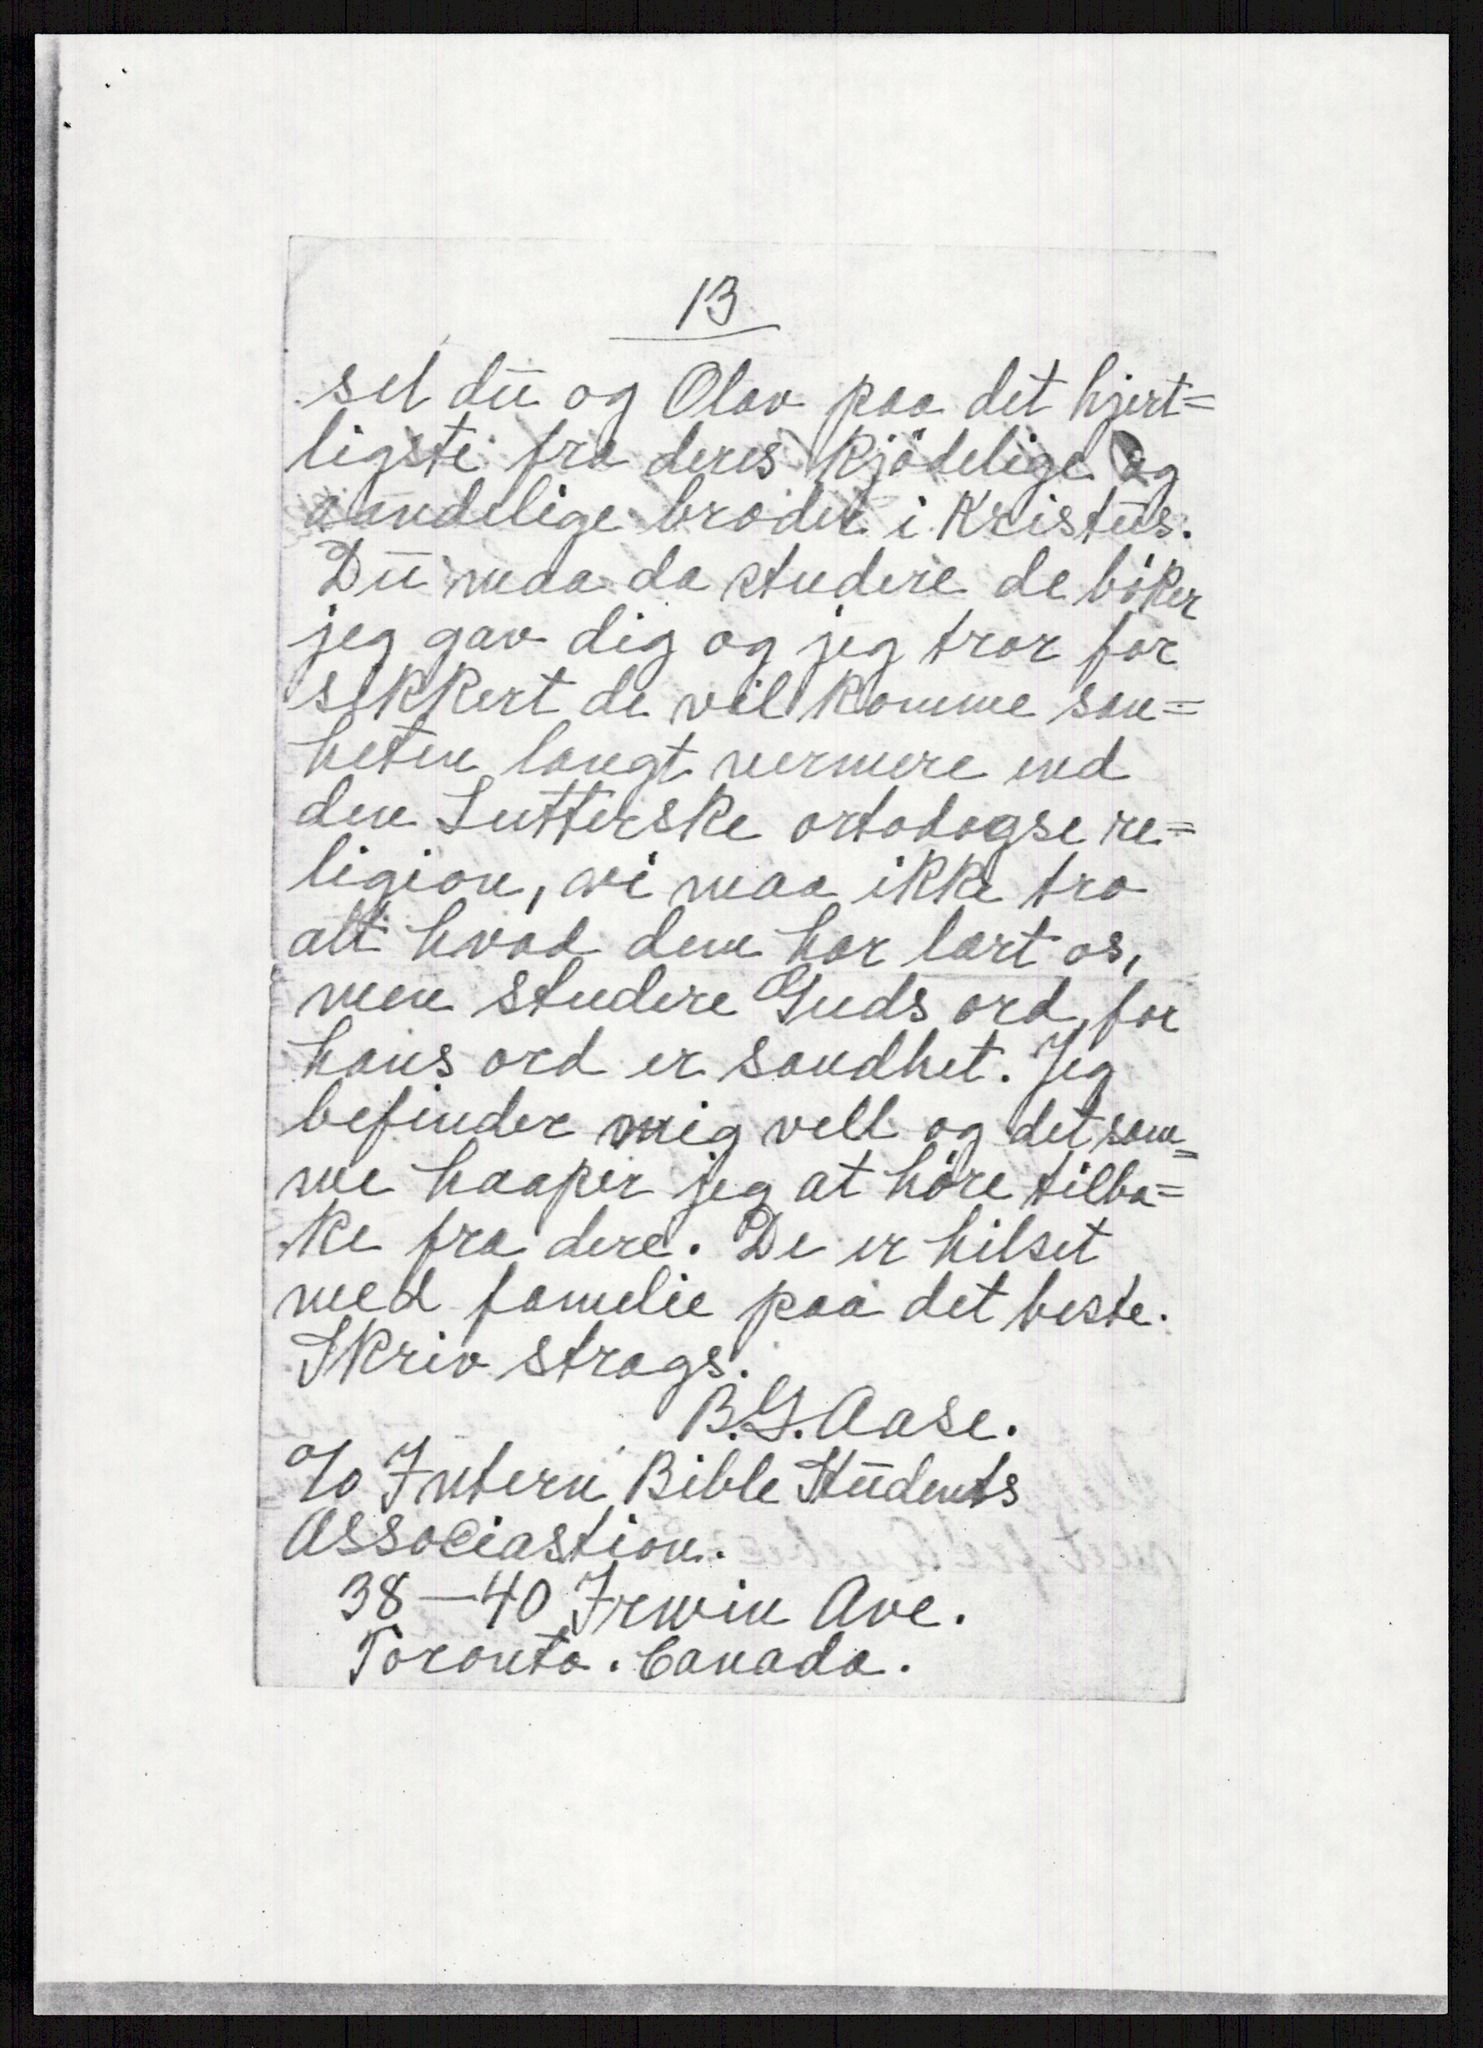 13
sel dū og Olav paa det hjert=
ligste fra deres kjödelige og
aandelige broder i Kristūs.
Dū maa da studere de böker
jeg gav dig og jeg tror for
sekkert de vil komme san=
heten langt nermere end
den Lutterske ortodogse re=
ligion, vi maa ikke tro
alt hvad dem har lært os,
men studere Guds ord, for
hans ord er sandhet. Jeg
befinder mig vell og det sam=
me haaper jeg at höre tilba=
ke fra dere. De er hilset
med familie paa det beste.
Skriv strags.
B.G. Aase.
c/o Intern Bible Stūdents
Associastion.
38–40 Irwin Ave.
Toronto. Canada.